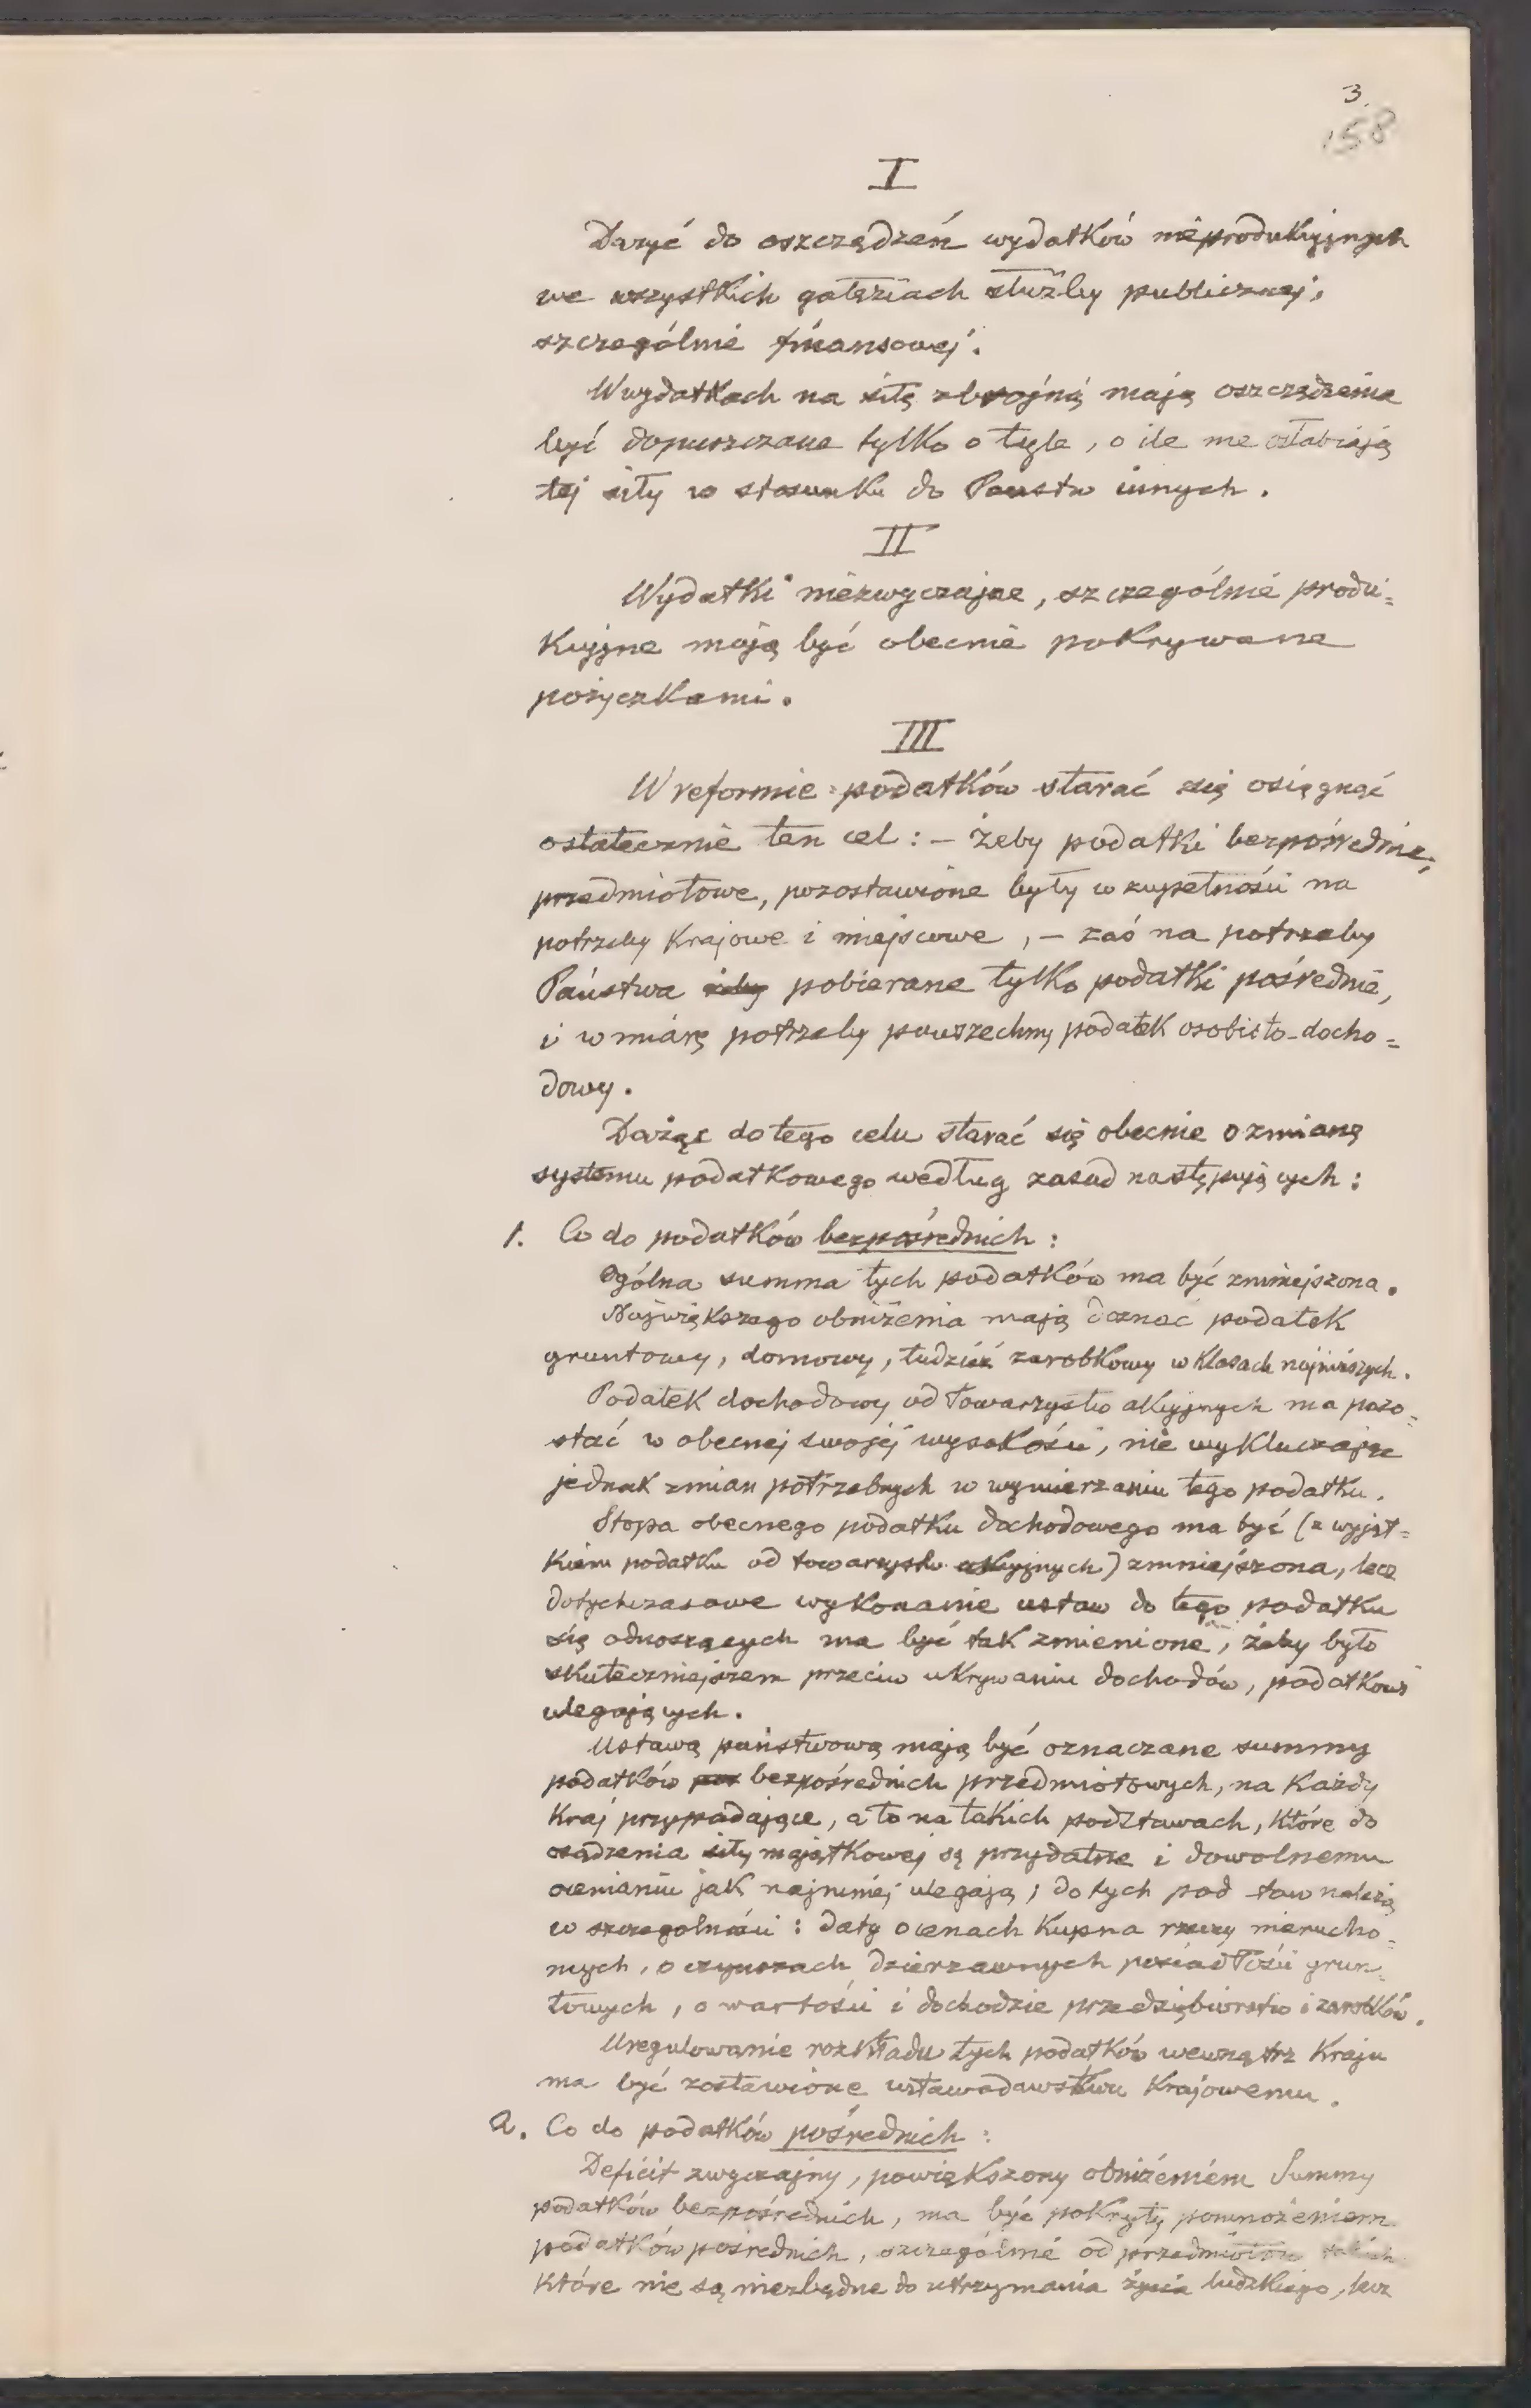 3.
158
I
Dążyć do oszczędzeń wydatków nieprodukcyjnych
we wszystkich gałęziach służby publicznej,
szczególnie finansowej.
W wydatkach na siłę zbrojną mają oszczędzenia
być dopuszczane tylko o tyle, o ile nie osłabiają
tej siły w stosunku do Państw innych.
II
Wydatki niezwyczajne, szczególnie produ=
kcyjne mają być obecnie pokrywane
pożyczkami.
III
W reformie podatków starać się osiągnąć
ostatecznie ten cel: – żeby podatki bezpośrednie,
przedmiotowe, pozostawione były w zupełności na
potrzeby Krajowe i miejscowe, – zaś na potrzeby
Państwa żeby pobierane tylko podatki pośrednie,
i w miarę potrzeby powszechny podatek osobisto-docho=
dowy.
Dążąc do tego celu starać się obecnie o zmianę
systemu podatkowego według zasad następujących:
1. Co do podatków bezpośrednich:
Ogólna summa tych podatków ma być zmniejszona.
Największego obniżenia mają doznać podatek
gruntowy, domowy, tudzież zarobkowy w Klasach najniższych.
Podatek dochodowy od Towarzystw akcyjnych ma pozo=
stać w obecnej swojej wysokości, nie wykluczając
jednak zmian potrzebnych w wymierzaniu tego podatku.
Stopa obecnego podatku dochodowego ma być (z wyjąt=
kiem podatku od towarzystw akcyjnych) zmniejszona, lecz
dotychczasowe wykonanie ustaw do tego podatku
się odnoszących ma być tak zmienione, żeby było
skuteczniejszem przeciw ukrywaniu dochodów, podatkowi
ulegających.
Ustawą państwową mają być oznaczane summy
podatków bezpośrednich przedmiotowych, na Każdy
Kraj przypadające, a to na takich podstawach, które do
osądzenia siły majątkowej są przydatne i dowolnemu
ocenianiu jak najmniej ulegają; do tych pod staw należą
w szczególności: daty o cenach Kupna rzeczy nierucho=
mych, o czynszach dzierżawnych posiadłości grun=
towych, o wartości i dochodzie przedsiębiorstw i zarobków.
Uregulowanie rozkładu tych podatków wewnątrz Kraju
ma być zostawione ustawodawstwu Krajowemu.
2. Co do podatków pośrednich:
Deficit zwyczajny, powiększony obniżeniem Summy
podatków bezpośrednich, ma być pokryty pomnożeniem
podatków pośrednich, szczególnie od przedmiotów takich
Które nie są niezbędne do utrzymania życia ludzkiego, lecz